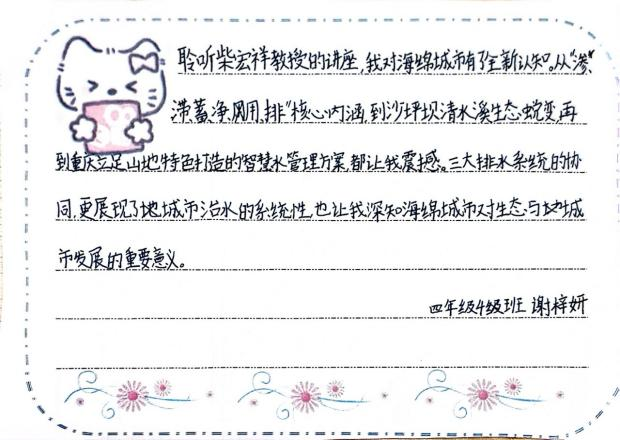 聆听柴宏祥教授的讲座，我对海绵城市有了全新认知。从“渗、
滞、蓄、净、用、排”核心内涵，到沙坪坝清水溪生态蜕变，再
到重庆立足山地特色打造的智慧水管理方案，都让我震撼。三大排水系统的协
同，更展现了地城市治水的系统性，也让我深知海绵城市对生态与地城
市发展的重要意义。
四年级4级班 谢梓妍